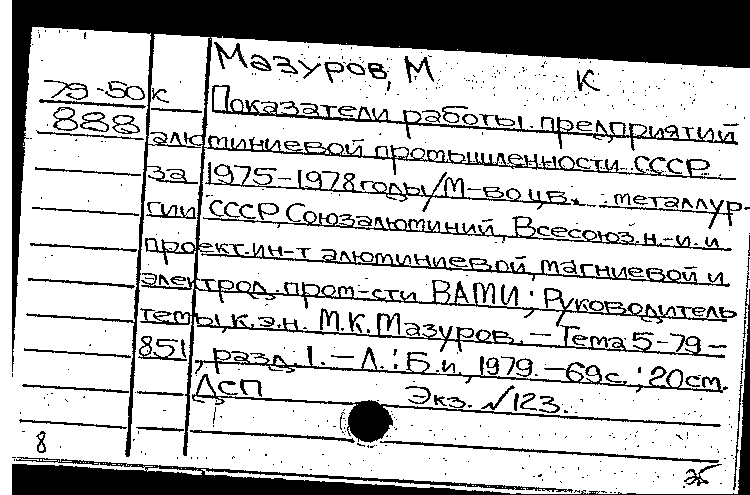 Мазуров, М К
79-50 к Показатели работы предприятий
888 алюминиевой промышленности СССР
за 1975-1978 годы/М-во цв. металлур-
гии СССР, Союзалюминий, Всесоюз.н.-и. и
проект.ин-т алюминиевой, магниевой и
электрод. пром-сти ВАМИ; Руководитель
темы, к.э.н. М.К.Мазуров. – Тема 5-79-
851, разд. 1. – Л.: Б.и, 1979. – 69 с.; 20см.
ДСП Экз. №123.
8